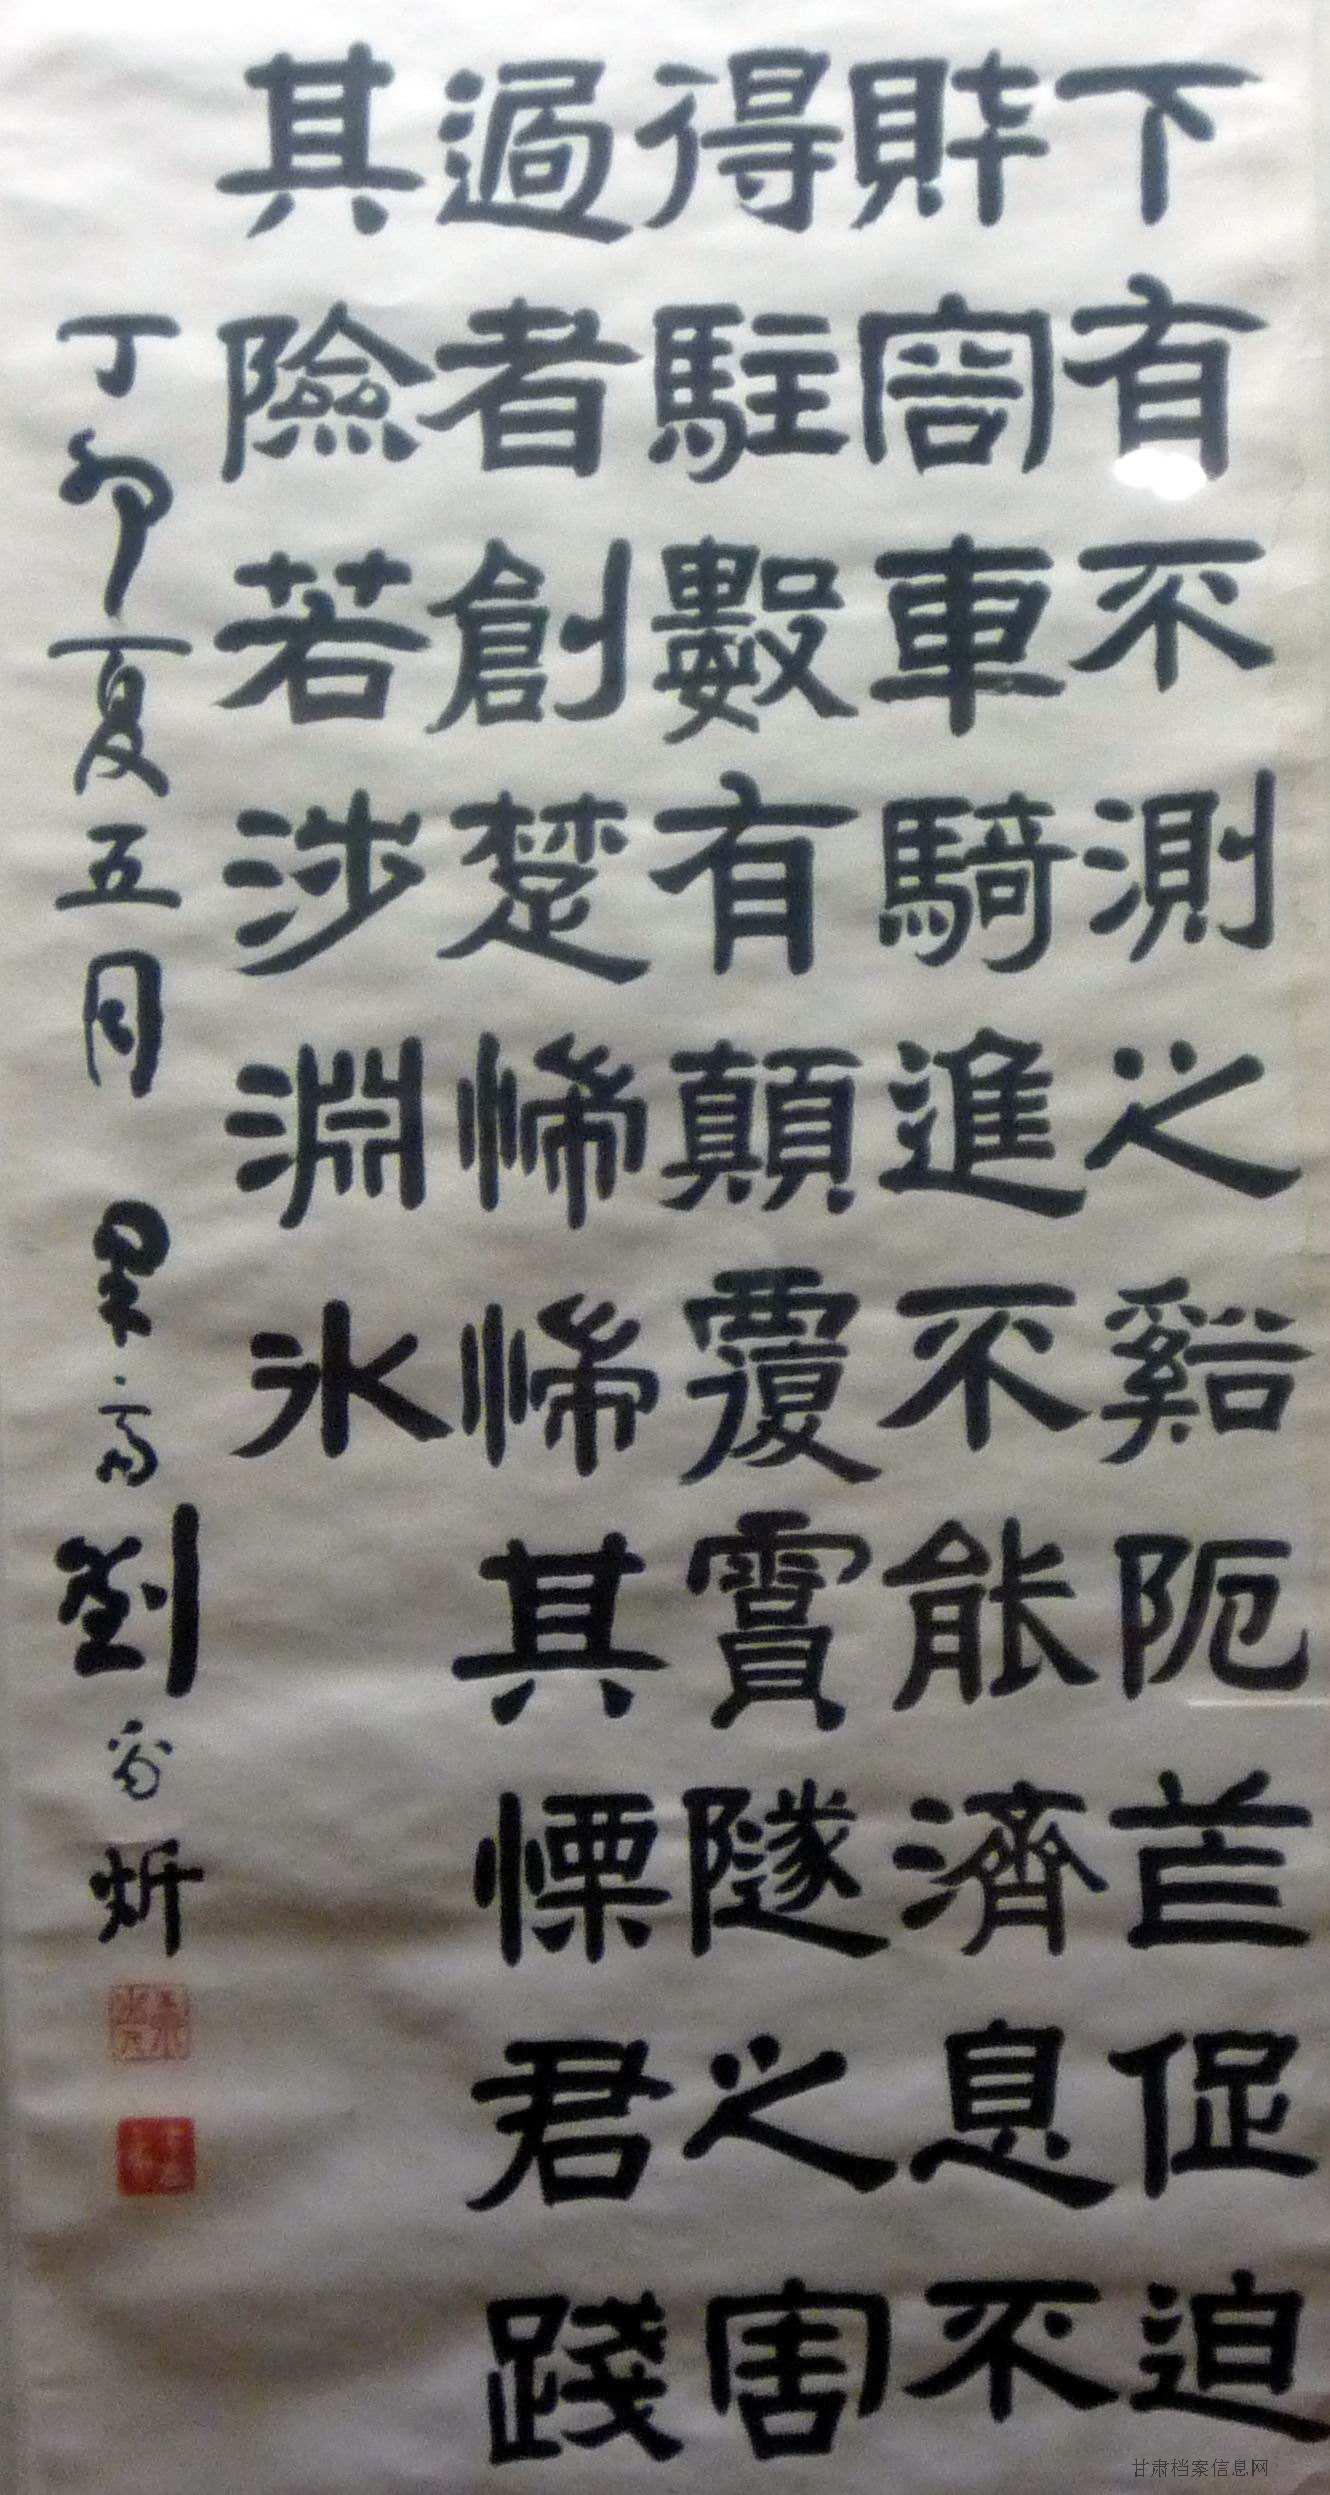 下有不測之谿阨苲促迫
財容車騎進不能濟息不
得駐數有顛覆霣隧之害
過者創楚惴惴其慄君踐
其險若涉淵氷
丁卯夏五月 果齋劉爾炘
甘肃档案信息网